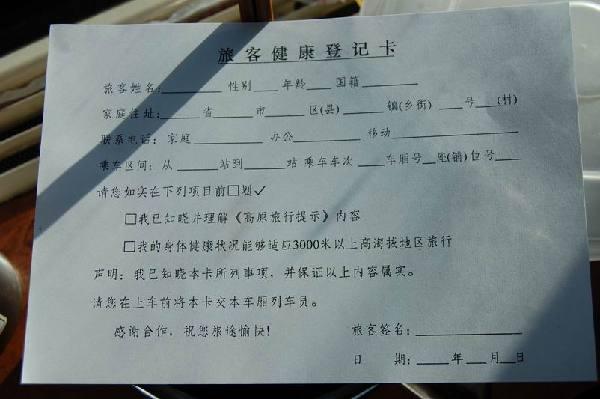 旅客健康登记卡
旅客姓名:________ 性别___ 年龄___ 国籍_______
家庭住址:_____省_____市_____区(县)_____镇(乡街)___号___(村)
联系电话: 家庭________ 办公________ 移动____________
乘车区间: 从_____站到_____站 乘车车次___车厢号__座(铺)位号___
请您如实在下列项目前□划✓
□我已知晓并理解《高原旅行提示》内容
□我的身体健康状况能够适应3000米以上高海拔地区旅行
声明: 我已知晓本卡所列事项, 并保证以上内容属实。
请您在上车前将本卡交本车厢列车员。
感谢合作, 祝您旅途愉快!
旅客签名: ____________
日 期: ____年___月__日